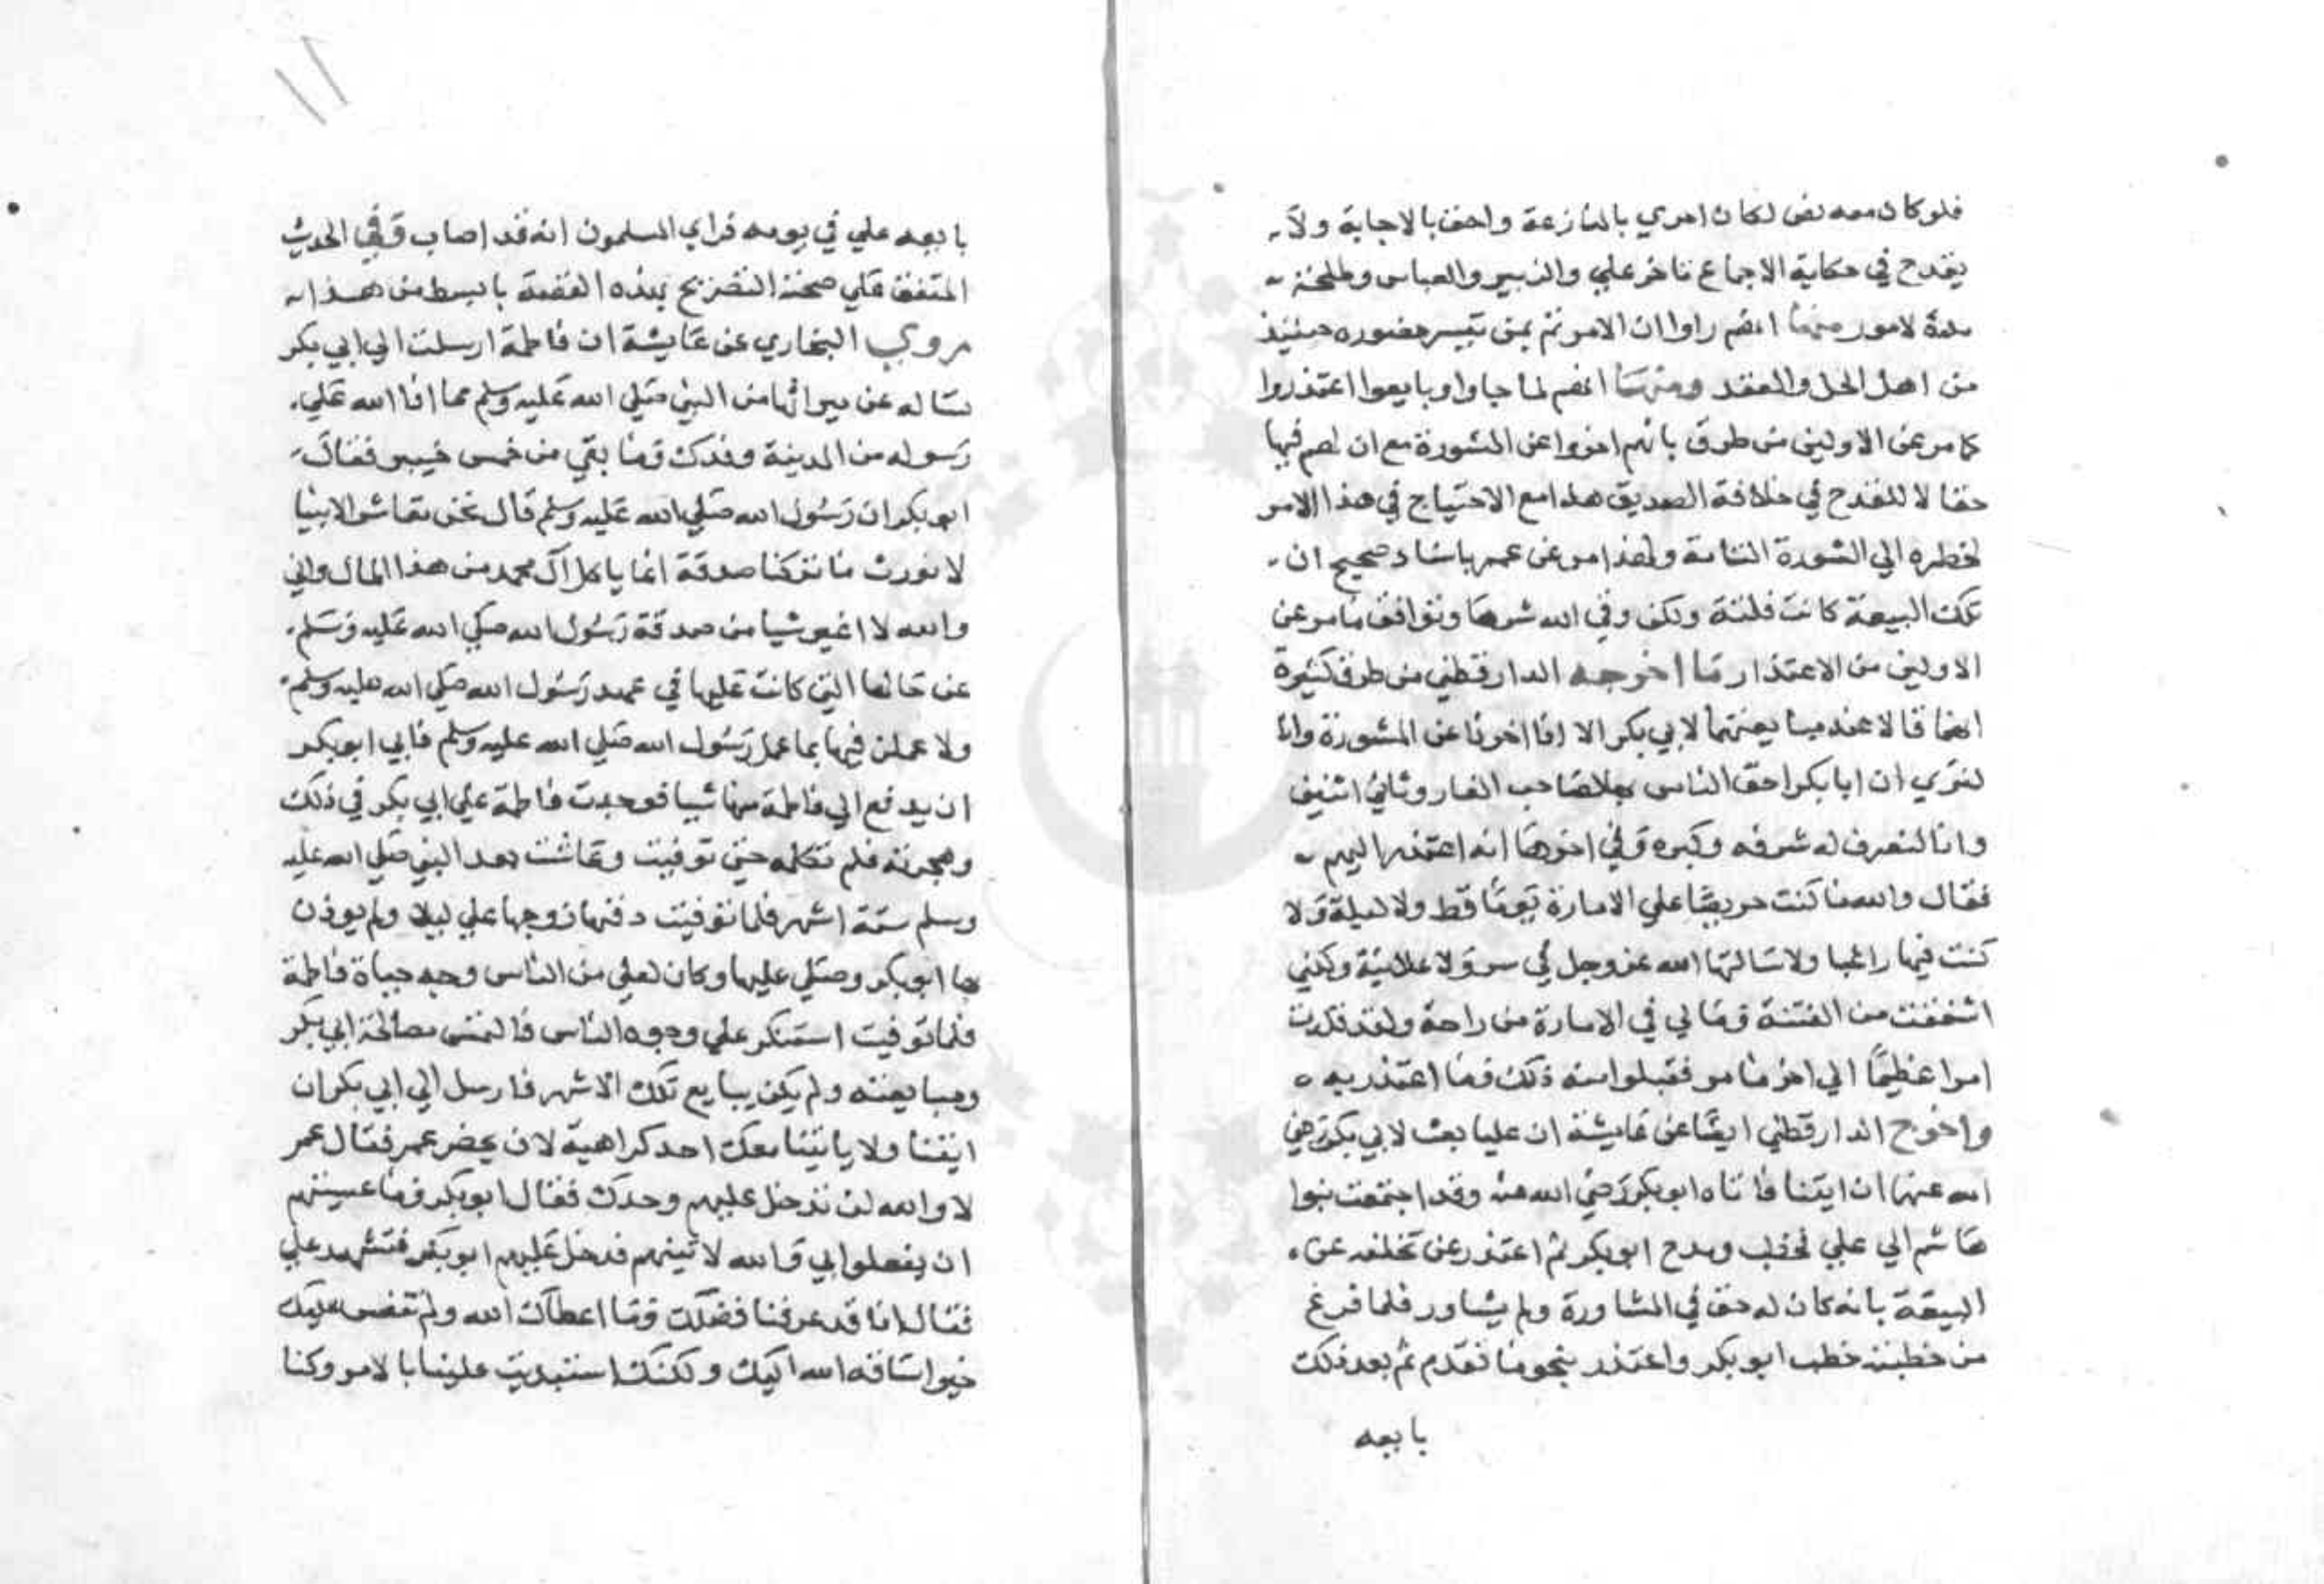 فلو كان معه نص لكان احري بالمنازعة واحق بالاجابة ولا
يقدح في حكاية الاجماع تاخر علي والزبير والعباس وطلحة
مدة لامور منها انهم راوا ان الامر تم بمن تيسر حضوره حينيذ
من اهل الحل والعقد ومنها انهم لما جاوا وبايعوا اعتذروا
كما مر عن الاولين من طرق بانهم اخروا عن المشورة مع ان لهم فيها
حقا لا للقدح في خلافة الصديق هذا مع الاحتياج في هذا الامر
لخطره الي الشورة التامة ولهذا مر عن عمر باسناد صحيح ان
تلك البيعة كانت فلتة ولكن وقي الله شرها وتوافق ما مر عن
الاولين من الاعتذار ما اخرجه الدارقطني من طرق كثيرة
انهما قالا عند مبايعتهما لابي بكر الا انا اخرنا عن المشورة وانا
لنري ان ابا بكر احق الناس بها لصاحب الغار وثاني اثنين
وانا لنعرف له شرفه وكبره وفي اخرها انه اعتذر اليهم
فقال والله ما كنت حريصا علي الامارة يوما قط ولا ليلة ولا
كنت فيها راغبا ولا سالتها الله عز وجل في سر ولا علانية ولكني
اشفقت من الفتنة وما لي في الامارة من راحة ولقد قلدت
امرا عظيما الي اخر ما مر فقبلوا منه ذلك وما اعتذر به
واخرج الدارقطني ايضا عن عايشة ان عليا بعث لابي بكر رضي
الله عنهما ان ايتنا فاتاه ابو بكر رضي الله عنه وقد اجتمعت بنوا
هاشم الي علي فخطب ومدح ابو بكر ثم اعتذر عن تخلفه عن
البيعة بانه كان له حق في المشاورة ولم يشاور فلما فرغ
من خطبته خطب ابو بكر واعتذر بنحو ما تقدم ثم بعد ذلك
بايعه
بايعه علي في يومه فراي المسلمون انه قد اصاب وفي الحديث
المتفق علي صحته التصريح بهذه القصة بابسط من هذا
مروي البخاري عن عايشة ان فاطمة ارسلت الي ابي بكر
تساله عن ميراثها من النبي صلي الله عليه وسلم مما افا الله علي
رسوله من المدينة وفدك وما بقي من خمس خيبر فقال
ابو بكر ان رسول الله صلي الله عليه وسلم قال نحن معاشر الانبيا
لا نورث ما تركنا صدقة انما ياكل آل محمد من هذا المال واني
والله لا اغير شيا من صدقة رسول الله صلي الله عليه وسلم
عن حالها التي كانت عليها في عهد رسول الله صلي الله عليه وسلم
ولا عملن فيها بما عمل رسول الله صلي الله عليه وسلم فابي ابو بكر
ان يدفع الي فاطمة منها شيا فوجدت فاطمة علي ابي بكر في ذلك
وهجرته فلم تكلمه حتي توفيت وعاشت بعد النبي صلي الله عليه
وسلم ستة اشهر فلما توفيت دفنها زوجها علي ليلا ولم يوذن
بها ابو بكر وصلي عليها وكان لعلي من الناس وجه حياة فاطمة
فلما توفيت استنكر علي وجوه الناس فالتمس مصالحة ابي بكر
ومبايعته ولم يكن يبايع تلك الاشهر فارسل الي ابي بكر ان
ايتنا ولا ياتينا معك احد كراهية لان يحضر عمر فقال عمر
لا والله لن تدخل عليهم وحدك فقال ابو بكر وما عسيتهم
ان يفعلوا بي والله لاتينهم فدخل عليهم ابو بكر فتشهد علي
فقال انا قد عرفنا فضلك وما اعطاك الله ولم ننفس عليك
خيرا ساقه الله اليك ولكنك استبديت علينا بالامر وكنا